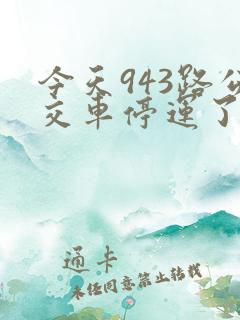 今天943路公
交车停运了
通卡
未经同意禁止转载